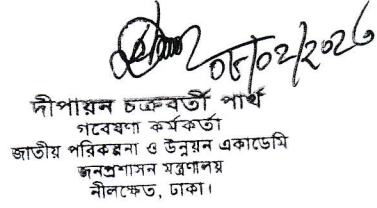 ০৮/০২/২০২৬
দীপায়ন চক্রবর্তী পার্থ
গবেষণা কর্মকর্তা
জাতীয় পরিকল্পনা ও উন্নয়ন একাডেমি
জনপ্রশাসন মন্ত্রণালয়
নীলক্ষেত, ঢাকা।